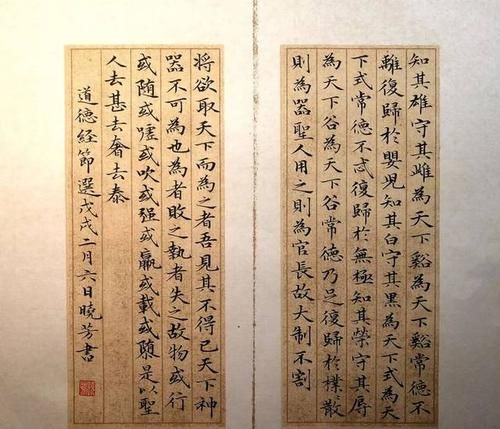 知其雄守其雌為天下谿為天下谿常德不
離復歸於嬰児知其白守其黑為天下式為天
下式常德不忒復歸於無極知其榮守其辱
為天下谷為天下谷常德乃足復歸於樸散
則為器聖人用之則為官長故大制不割
将欲取天下而為之者吾見其不得已天下神
器不可為也為者敗之執者失之故物或行
或随或嘘或吹或强或羸或載或隳是以聖
人去甚去奢去泰
道德經節選戊戌二月六日曉芳書